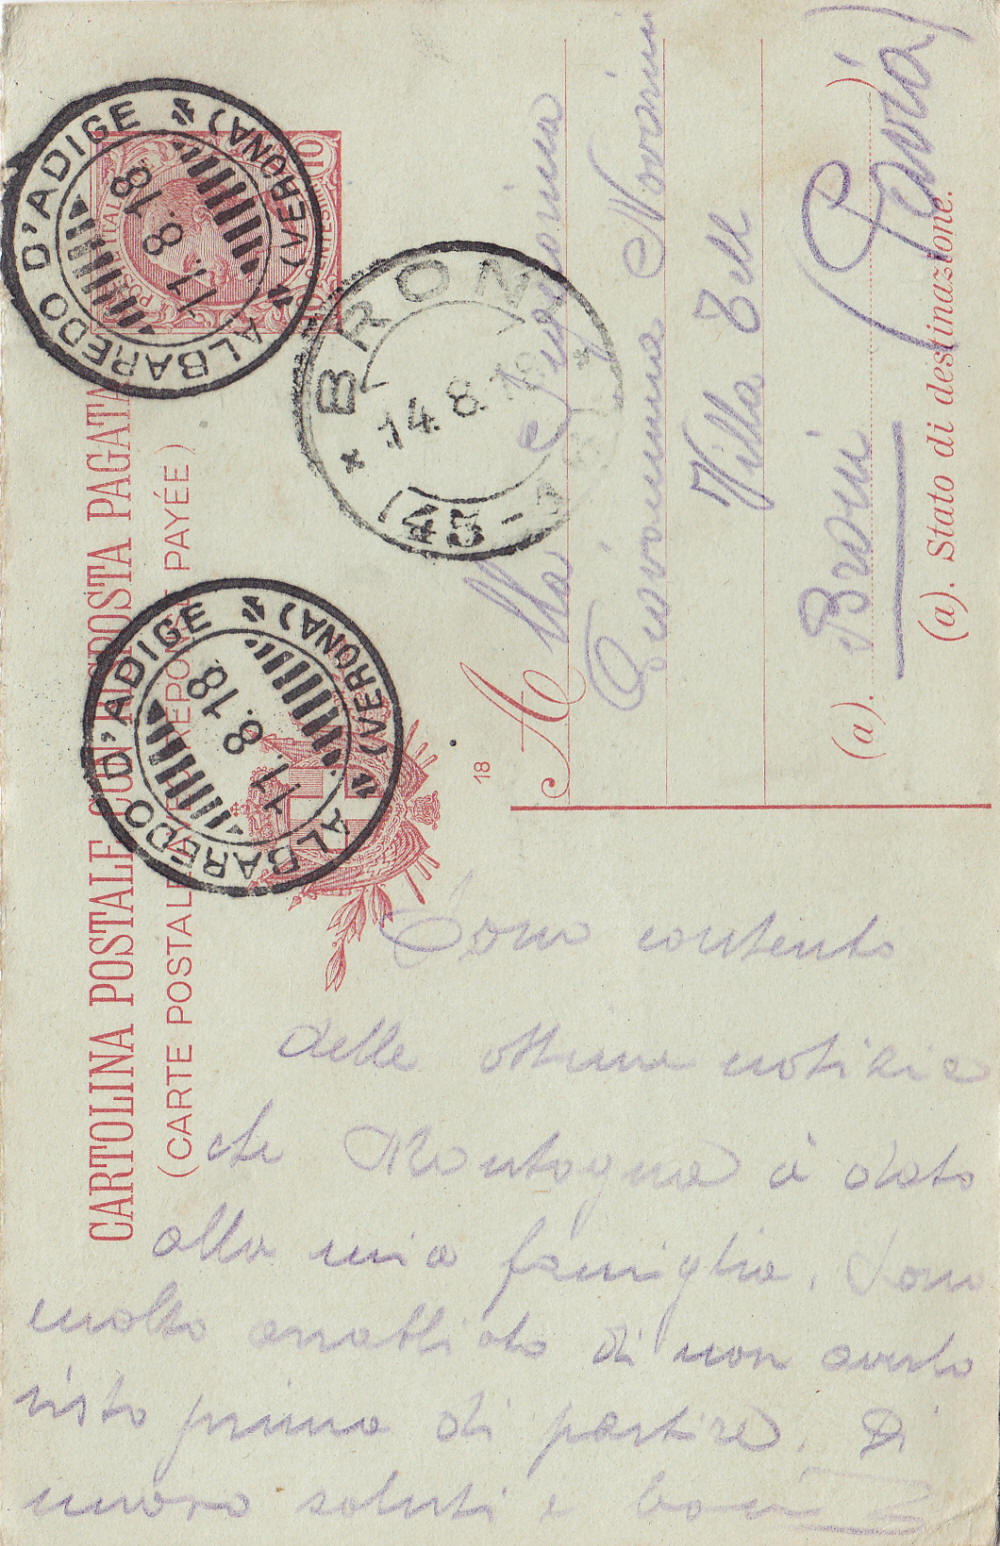 CARTOLINA POSTALE CON RISPOSTA PAGATA
(CARTE POSTALE AVEC RÉPONSE PAYÉE)
ALBAREDO D'ADIGE
(VERONA)
11.8.18
BRONI
14.8.18
45-
ALBAREDO D'ADIGE
(VERONA)
11.8.18
10
18
Alla Signorina
Giovanna Novarini
Villa Tell
Broni (Pavia)
(a).
(a). Stato di destinazione.
Sono contento
delle ottime notizie
che Montagna à dato
alla mia famiglia. Sono
molto arrabbiato di non averlo
visto prima di partire. Di
nuovo saluti e baci